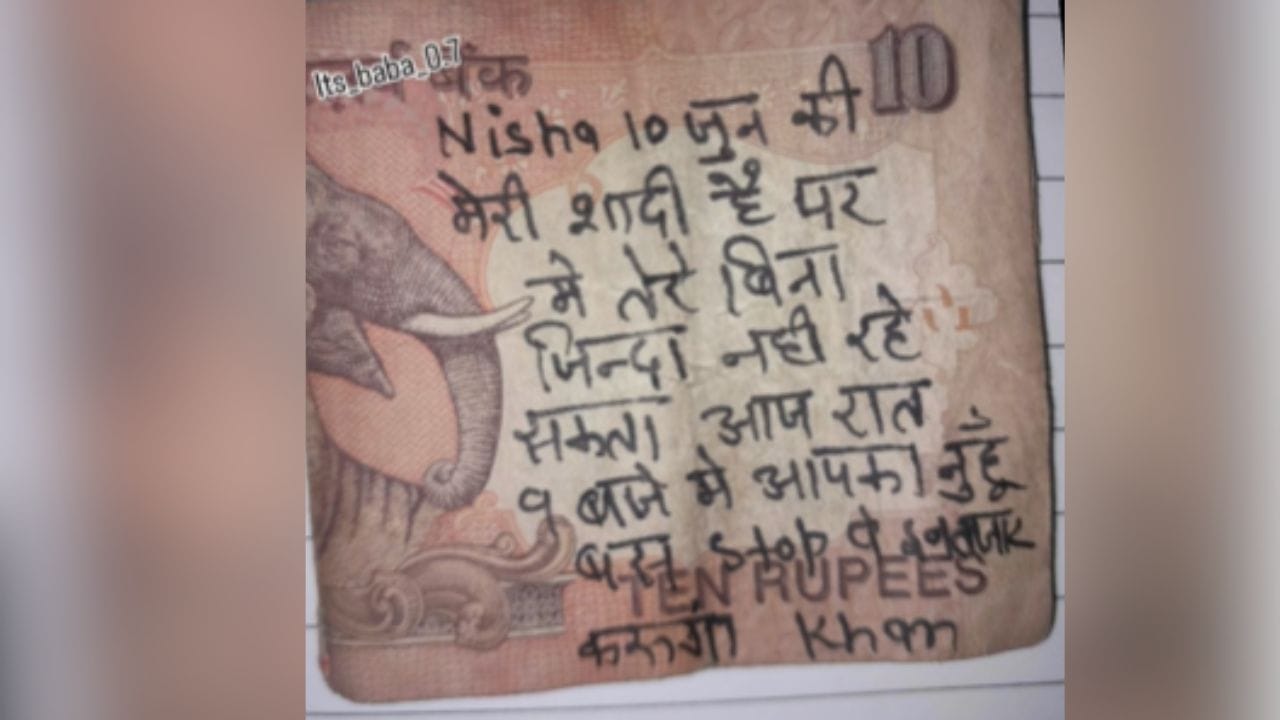 Its_baba_0.7
बैंक
10
Nisha 10 जुन की
मेरी शादी है पर
मे तेरे बिना
जिन्दा नही रहे
सकता आज रात
9 बजे मे आपका
बस stop पे इन्तजार
TEN RUPEES
करुगा Khan